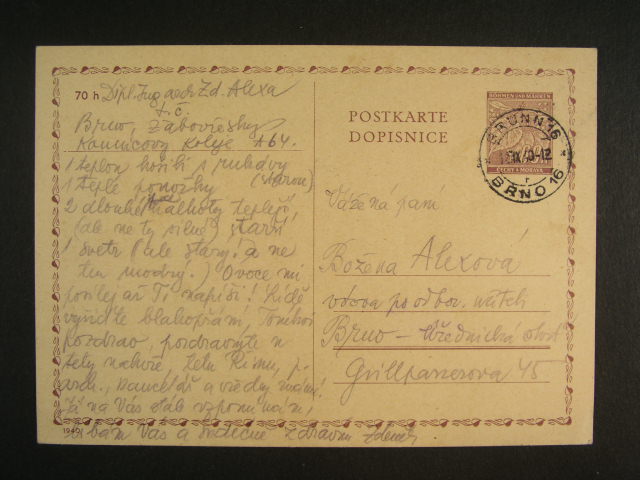 70 h Dipl. Ing. Zd. Alexa
t. č.
Brno, Žabovřesky
Kounicovy Koleje A 64.
1 teplou košili s rukávy
1 teplé ponožky (starou)
2 dlouhé kalhoty teplejší
(ale ne ty silné) starší
1 svetr (ale starý! a ne
ten modrý.) Ovoce mi
posílej až Ti napíši! Lídě
vyřiďte blahopřání,
pozdrav, pozdravujte
kancelář a všechny známé!
Já na Vás stále vzpomínám,
líbám Vás a srdečně zdravím Zdeněk
1940
POSTKARTE
DOPISNICE
BÖHMEN UND MÄHREN
ČECHY A MORAVA
BRÜNN 16
40-12
BRNO 16
Vážená paní
Božena Alexová
vdova po odbor. učiteli
Brno - Úřednická
Grillparzerova 45